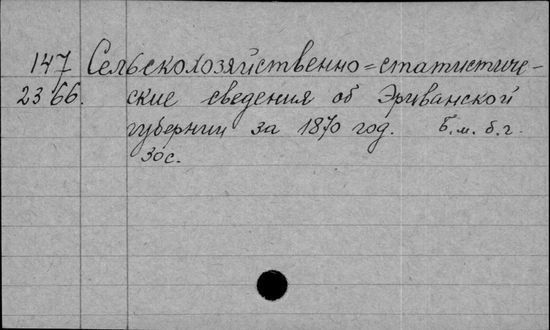 147 Сельскохозяйственно=статистиче-
2366. ские сведения об Эриванской
губернии за 1870 год. Б.м. б.г.
30с.